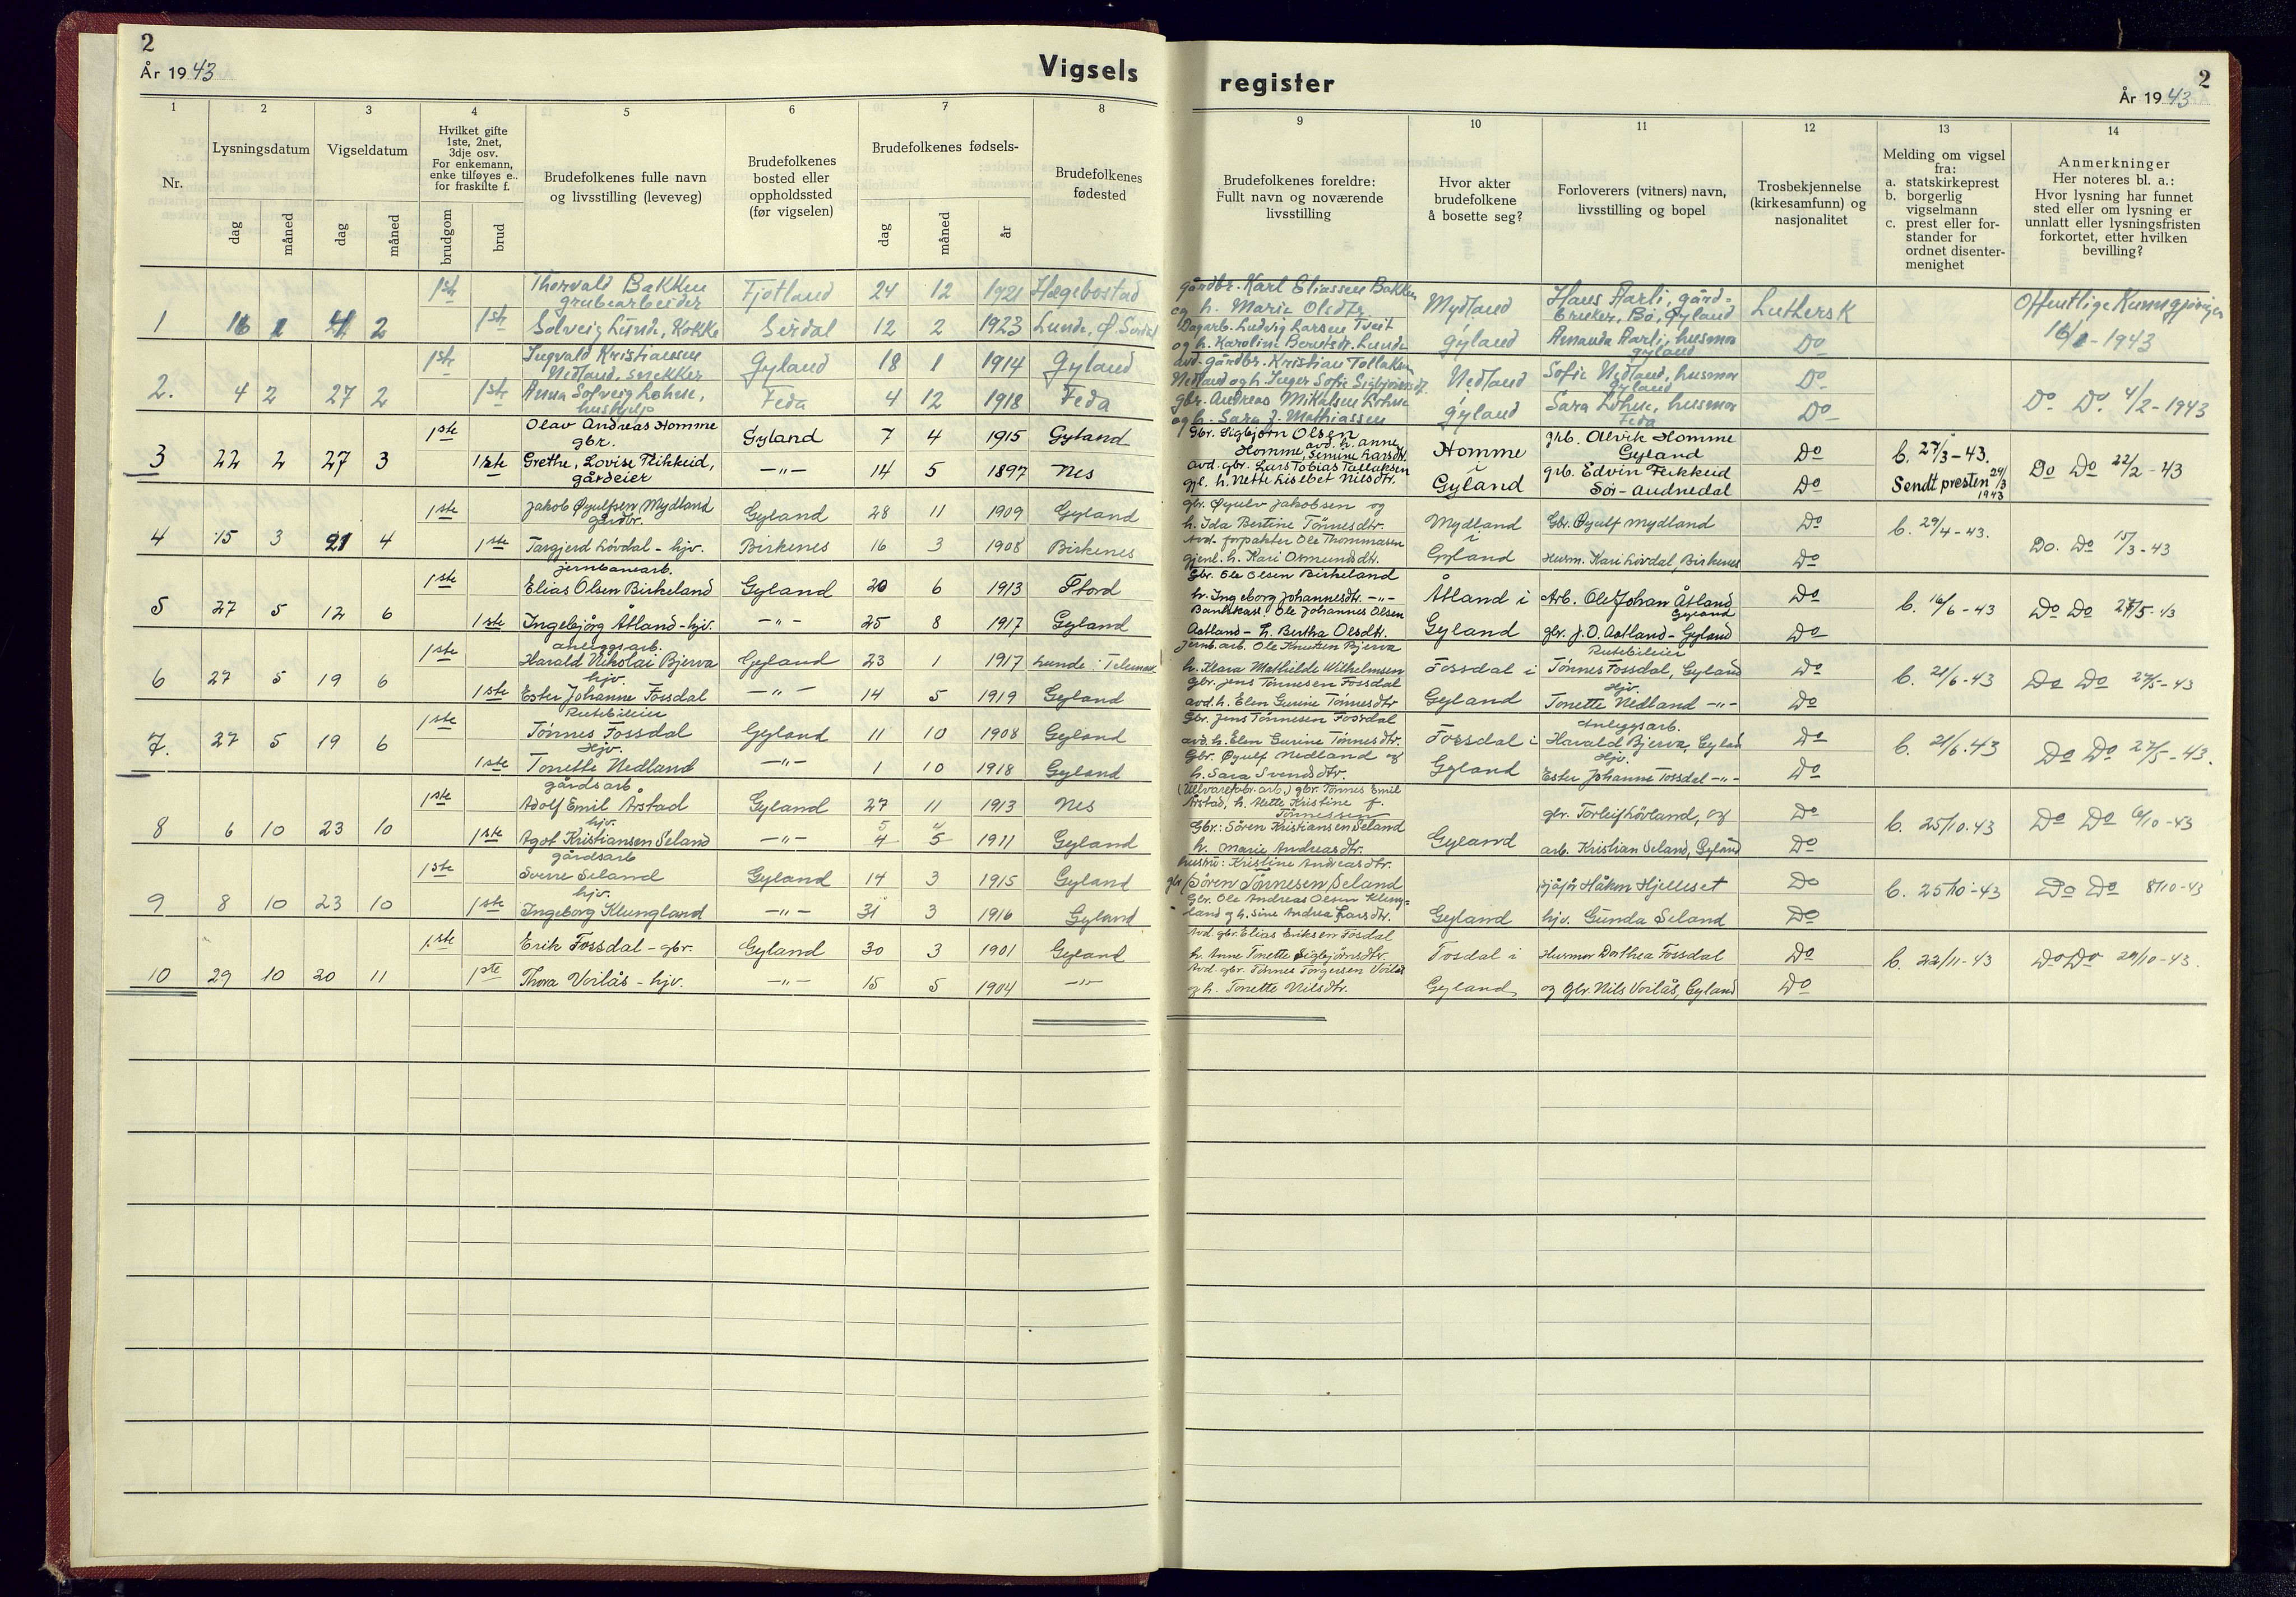 2
År 1943
Vigsels
1 2 3 4 5 6 7 8
Nr.
Lysningsdatum
Vigseldatum
Hvilket gifte
1ste, 2net,
3dje osv.
For enkemann,
enke tilføyes e..
for fraskilte f.
Brudefolkenes fulle navn
og livsstilling (leveveg)
Brudefolkenes
bosted eller
oppholdssted
(før vigselen)
Brudefolkenes fødsels-
Brudefolkenes
fødested
dag måned dag måned brudgom brud dag måned år
1ste Thorvald Bakken Fjotland 24 12 1921 Hægebostad
grubearbeider
1 16 1 4 2 1ste Solveig Lunde, Kokke Sirdal 12 2 1923 Lunde, Ø. Sirdal
1ste Ingvald Kristiansen Gyland 18 1 1914 Gyland
Nedland, snekker
2. 4 2 27 2 1ste Anna Solveig Lohne, Feda 4 12 1918 Feda
hushjelp
1ste Olav Andreas Homme Gyland 7 4 1915 Gyland
gbr.
3 22 2 27 3 1ste Grethe, Lovise Fikkeid, -"- 14 5 1897 Nes
gårdeier
1ste Jakob Øyulfsen Mydland Gyland 28 11 1909 Gyland
gårdbr.
4 15 3 21 4 1ste Targjerd Lövdal - hjv. Birkenes 16 3 1908 Birkenes
jernbanearb.
1ste Elias Olsen Birkeland Gyland 20 6 1913 Stord
5 27 5 12 6 1ste Ingebjørg Åtland - hjv. -"- 25 8 1917 Gyland
anleggsarb.
1ste Harald Nikolai Bjerva Gyland 23 1 1917 Lunde i Telemark
hjv.
6 27 5 19 6 1ste Ester Johanne Fossdal -"- 14 5 1919 Gyland
Rutebileier
1ste Tønnes Fossdal Gyland 11 10 1908 Gyland
Hjv.
7. 27 5 19 6 1ste Tonette Nedland -"- 1 10 1918 Gyland
gårdsarb
1ste Adolf Emil Årstad Gyland 27 11 1913 Nes
hjv. 5 4
8 6 10 23 10 1ste Agot Kristiansen Seland -"- 4 5 1911 Gyland
gårdsarb
1ste Sverre Seland Gyland 14 3 1915 Gyland
hjv.
9 8 10 23 10 1ste Ingeborg Klungland -"- 31 3 1916 Gyland
1ste Erik Fossdal - gbr. Gyland 30 3 1901 Gyland
10 29 10 20 11 1ste Thora Voilås - hjv. -"- 15 5 1904 -"-
register
2
År 1943
9 10 11 12 13 14
Brudefolkenes foreldre:
Fullt navn og noværende
livsstilling
Hvor akter
brudefolkene
å bosette seg?
Forloverers (vitners) navn,
livsstilling og bopel
Trosbekjennelse
(kirkesamfunn) og
nasjonalitet
Melding om vigsel
fra:
a. statskirkeprest
b. borgerlig
vigselmann
c. prest eller for-
stander for
ordnet disenter-
menighet
Anmerkninger
Her noteres bl. a.:
Hvor lysning har funnet
sted eller om lysning er
unnlatt eller lysningsfristen
forkortet, etter hvilken
bevilling?
gårdbr. Karl Eliassen Bakken
og h. Marie Olsdtr
Dagarb. Ludvig Larsen Tveit
og h. Karoline Berntsdt. Lunde
Mydland
i
Gyland
Hans Aarli, gård-
bruker, Bø, Gyland
Amanda Aarli, husmor
Gyland
Luthersk
Do
Offentlige Kunngjøringer
16/1 - 1943
avd. gårdbr. Kristian Tollaksen
Nedland og h. Inger Sofie Sigbjörnsdt.
gbr. Andreas Mikalsen Lohne
og h. Sara J. Mathiassen
Nedland
i
Gyland
Sofie Nedland, husmor
Gyland
Sara Lohne, husmor
Feda
Do
Do
Do Do 4/2 - 1943
Gbr. Sigbjørn Olsen
Homme, avd. h. Anne
Semine Larsdtr.
avd. gbr. Lars Tobias Tallaksen
gjl. h. Nette Lisebet Nilsdtr.
Homme
i
Gyland
grb. Alvik Homme
Gyland
grb. Edvin Fikkeid
Sør-Audnedal
Do
Do
b. 27/3 - 43.
Sendt presten 29/3
1943
Do Do 22/2 - 43
gbr. Øyulv Jakobsen og
h. Ida Bertine Tönnesdtr.
Avd. forpakter Ole Thommasen
gjenl. h. Kari Osmundsdtr.
Mydland
i
Gyland
Gbr. Øyulf Mydland
Husm. Kari Lövdal, Birkenes
Do
Do
b. 29/4 - 43.
Do. Do 15/3 - 43
Gbr. Ole Olsen Birkeland
h. Ingeborg Johannesdtr. -"-
Bankkass. Ole Johannes Olsen
Aatland - h. Bertha Olsdtr.
Åtland i
Gyland
Arb. Ole Johan Åtland
Gyland
gbr. J. O. Aatland - Gyland
Do
Do
b. 16/6 - 43
Do Do 27/5 - 43
Jernb.arb. Ole Knutsen Bjerva
h. Klara Mathilde Wilhelmsen
Gbr. Jens Tønnesen Fossdal
avd. h. Elen Gurine Tønnesdtr
Fossdal i
Gyland
Rutebileier
Tønnes Fossdal, Gyland
Hjv.
Tonette Nedland -"-
Do
Do
b. 21/6 - 43
Do Do 27/5 - 43
Gbr. Jens Tønnesen Fossdal
avd. h. Elen Gurine Tønnesdtr.
Gbr. Øyulf Nedland og
h. Sara Svendsdtr.
Fossdal i
Gyland
Anleggsarb.
Harald Bjerva, Gyland
Hjv.
Ester Johanne Fossdal -"-
Do
Do
b. 21/6 - 43
Do Do 27/5 - 43.
(Ullvarefabr. arb.) gbr. Tönnes Emil
Årstad, h. Mette Kristine f.
Tönnessen
Gbr.: Sören Kristiansen Seland
h. Marie Andreasdtr.
Gyland
gbr. Torleif Lövland, og
arb. Kristian Seland, Gyland
Do
Do
b. 25/10 - 43
Do Do 6/10 - 43
hustru: Kristine Andreasdtr.
gbr. Sören Tönnesen Seland
Gbr. Ole Andreas Olsen Klung-
land og h. Sine Andrea Larsdtr.
Gyland
sjåfør Håkon Hjelleset
hjv. Gunda Seland
Do
Do
b. 25/10 - 43
Do Do 8/10 - 43
Avd. gbr. Elias Eriksen Fosdal
h. Anne Tonette Sigbjörnsdtr.
Avd. gbr. Tönnes Torgersen Voilås
og h. Tonette Nilsdtr.
Fosdal i
Gyland
Husmor Dorthea Fossdal
og Gbr. Nils Voilås, Gyland
Do
Do
b. 22/11 - 43
Do Do 29/10 - 43.